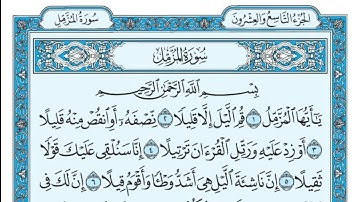 الجُزْءُ التَّاسِعُ وَالعِشْرُونَ
سُورَةُ المُزَّمِّلِ
سُورَةُ المُزَّمِّلِ
بِسْمِ ٱللَّهِ ٱلرَّحْمَٰنِ ٱلرَّحِيمِ
يَٰٓأَيُّهَا ٱلْمُزَّمِّلُ ١ قُمِ ٱلَّيْلَ إِلَّا قَلِيلًا ٢ نِّصْفَهُۥٓ أَوِ ٱنقُصْ مِنْهُ قَلِيلًا
٣ أَوْ زِدْ عَلَيْهِ وَرَتِّلِ ٱلْقُرْءَانَ تَرْتِيلًا ٤ إِنَّا سَنُلْقِى عَلَيْكَ قَوْلًا
ثَقِيلًا ٥ إِنَّ نَاشِئَةَ ٱلَّيْلِ هِىَ أَشَدُّ وَطْـًٔا وَأَقْوَمُ قِيلًا ٦ إِنَّ لَكَ فِى